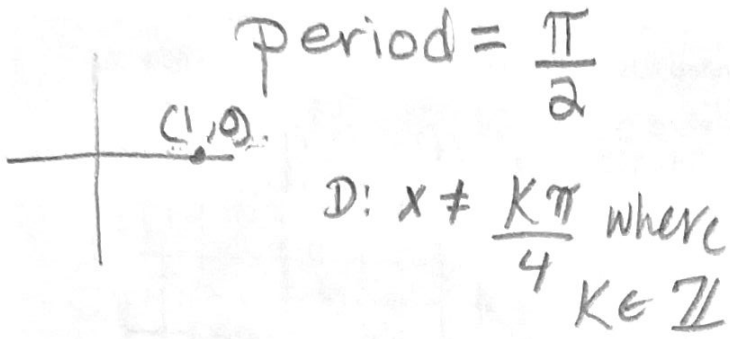 period = π/2
(1,0)
D: x ≠ Kπ/4 where
K ∈ ℤ